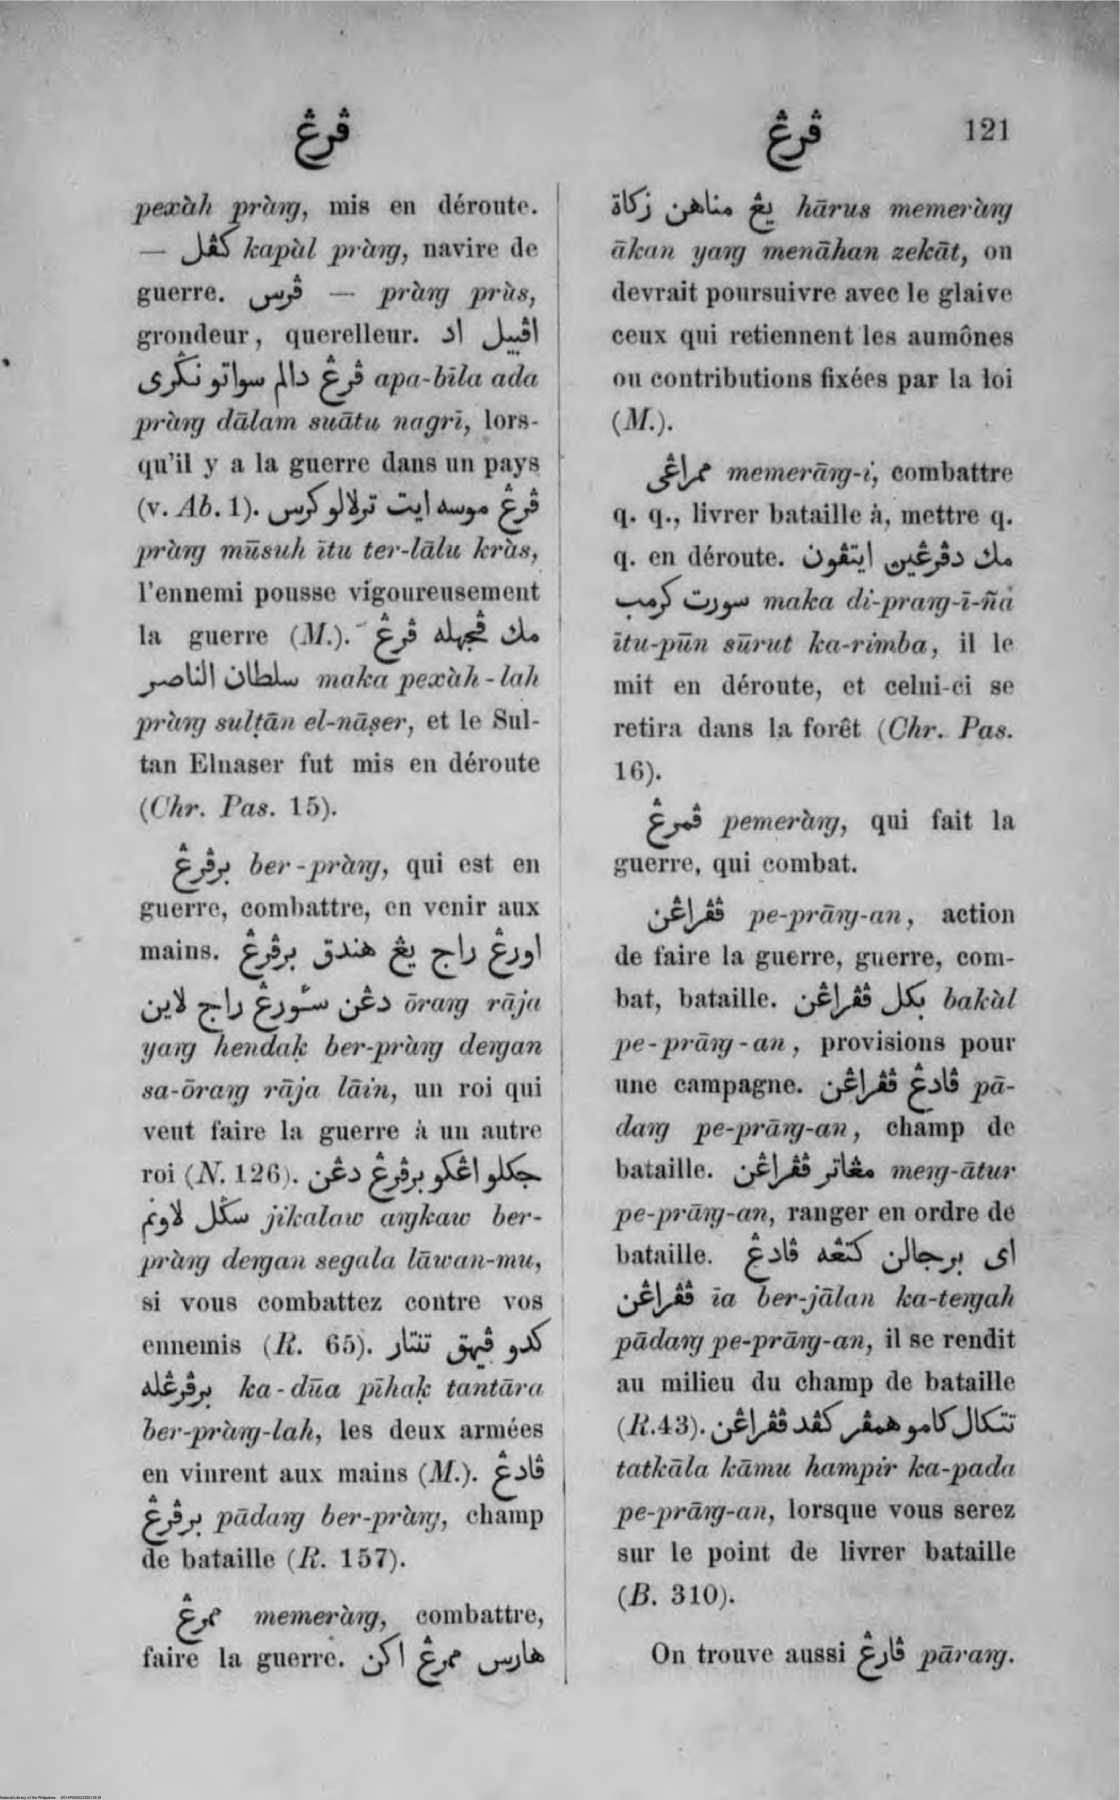 ڤرڠ
ڤرڠ
121
pexàh pràrg, mis en déroute.
— كڤل kapàl pràrg, navire de
guerre. ڤرس — pràrg prùs,
grondeur, querelleur. اڤبيل اد
ڤرڠ دالم سواتو نڬري apa-bīla ada
pràrg dālam suātu nagrī, lors-
qu'il y a la guerre dans un pays
(v. Ab. 1). ڤرڠ موسه ايت ترلالو كرس
pràrg mūsuh ītu ter-lālu kràs,
l'ennemi pousse vigoureusement
la guerre (M.). مك ڤچهله ڤرڠ
سلطان الناصر maka pexàh-lah
pràrg sulṭān el-nāṣer, et le Sul-
tan Elnaser fut mis en déroute
(Chr. Pas. 15).
برڤرڠ ber-pràrg, qui est en
guerre, combattre, en venir aux
mains. اورڠ راج يڠ هندق برڤرڠ
دڠن سئورڠ راج لاين ōrarg rāja
yarg hendaḳ ber-pràrg dergan
sa-ōrarg rāja lāin, un roi qui
veut faire la guerre à un autre
roi (N. 126). جكلو اڠكو برڤرڠ دڠن
سڬل لاونم jikalaw argkaw ber-
pràrg dergan segala lāwan-mu,
si vous combattez contre vos
ennemis (R. 65). كدو ڤيهق تنتار
برڤرڠله ka-dūa pīhaḳ tantāra
ber-pràrg-lah, les deux armées
en vinrent aux mains (M.). ڤادڠ
برڤرڠ pādarg ber-pràrg, champ
de bataille (R. 157).
ممرڠ memeràrg, combattre,
faire la guerre. هارس ممرڠ اكن
يڠ مناهن زكاة hārus memeràrg
ākan yarg menāhan zekāt, on
devrait poursuivre avec le glaive
ceux qui retiennent les aumônes
ou contributions fixées par la loi
(M.).
ممراڠي memerārg-i, combattre
q. q., livrer bataille à, mettre q.
q. en déroute. مك دڤرڠين ايتڤون
سورت كرمب maka di-prarg-ī-ñà
ītu-pūn sūrut ka-rimba, il le
mit en déroute, et celui-ci se
retira dans la forêt (Chr. Pas.
16).
ڤمرڠ pemeràrg, qui fait la
guerre, qui combat.
ڤڤراڠن pe-prārg-an, action
de faire la guerre, guerre, com-
bat, bataille. بكل ڤڤراڠن bakàl
pe-prārg-an, provisions pour
une campagne. ڤادڠ ڤڤراڠن pā-
darg pe-prārg-an, champ de
bataille. مڠاتر ڤڤراڠن merg-ātur
pe-prārg-an, ranger en ordre de
bataille. اي برجالن كتڠه ڤادڠ
ڤڤراڠن īa ber-jālan ka-tergah
pādarg pe-prārg-an, il se rendit
au milieu du champ de bataille
(R.43). تتكال كامو همڤر كڤد ڤڤراڠن
tatkāla kāmu hampir ka-pada
pe-prārg-an, lorsque vous serez
sur le point de livrer bataille
(B. 310).
On trouve aussi ڤارڠ pārarg.